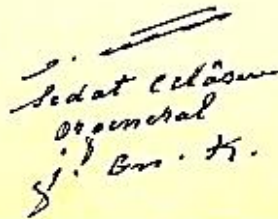 Sedat Celâsun
Orgeneral
J. Gn. K.